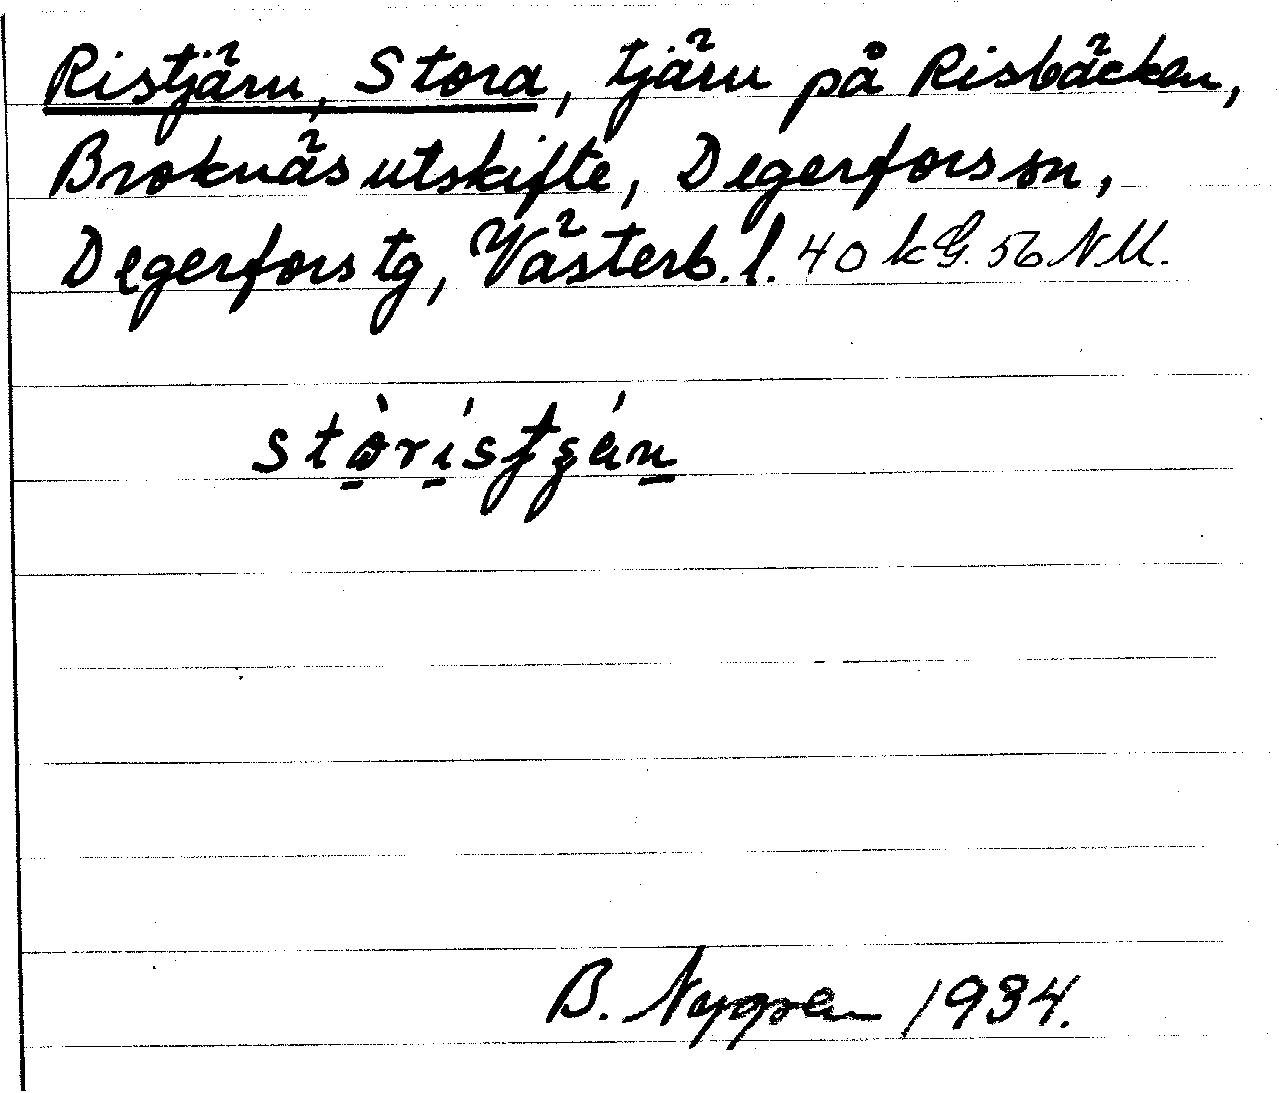 Ristjärn, Stora, tjärn på Risbäcken,
Broknäs utskifte, Degerfors sn,
Degerfors tg, Västerb. l. 40 kG. 56 NM.
B. Nygren 1934.